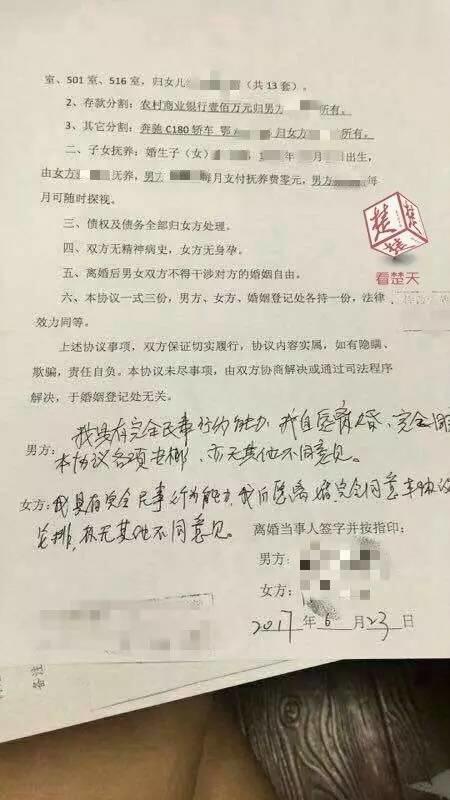 室、501 室、516 室，归女儿（共 13 套）。
2、存款分割：农村商业银行壹佰万元归男方所有。
3、其它分割：奔驰 C180 轿车 鄂归女方所有。
二、子女抚养：婚生子（女）年月出生，
由女方抚养，男方每月支付抚养费零元，男方每
月可随时探视。
三、债权及债务全部归女方处理。
四、双方无精神病史，女方无身孕。
五、离婚后男女双方不得干涉对方的婚姻自由。
六、本协议一式三份，男方、女方、婚姻登记处各持一份，法律
效力同等。
上述协议事项，双方保证切实履行，协议内容实属，如有隐瞒、
欺骗，责任自负。本协议未尽事项，由双方协商解决或通过司法程序
解决，于婚姻登记处无关。
我具有完全民事行为能力，我自愿离婚，完全同
男方：本协议各项安排，亦无其他不同意见。
女方：我具有完全民事行为能力，我自愿离婚，完全同意本协议
安排，亦无其他不同意见。
离婚当事人签字并按指印：
男方：
女方：
2017年6月23日
楚
看楚天
备注